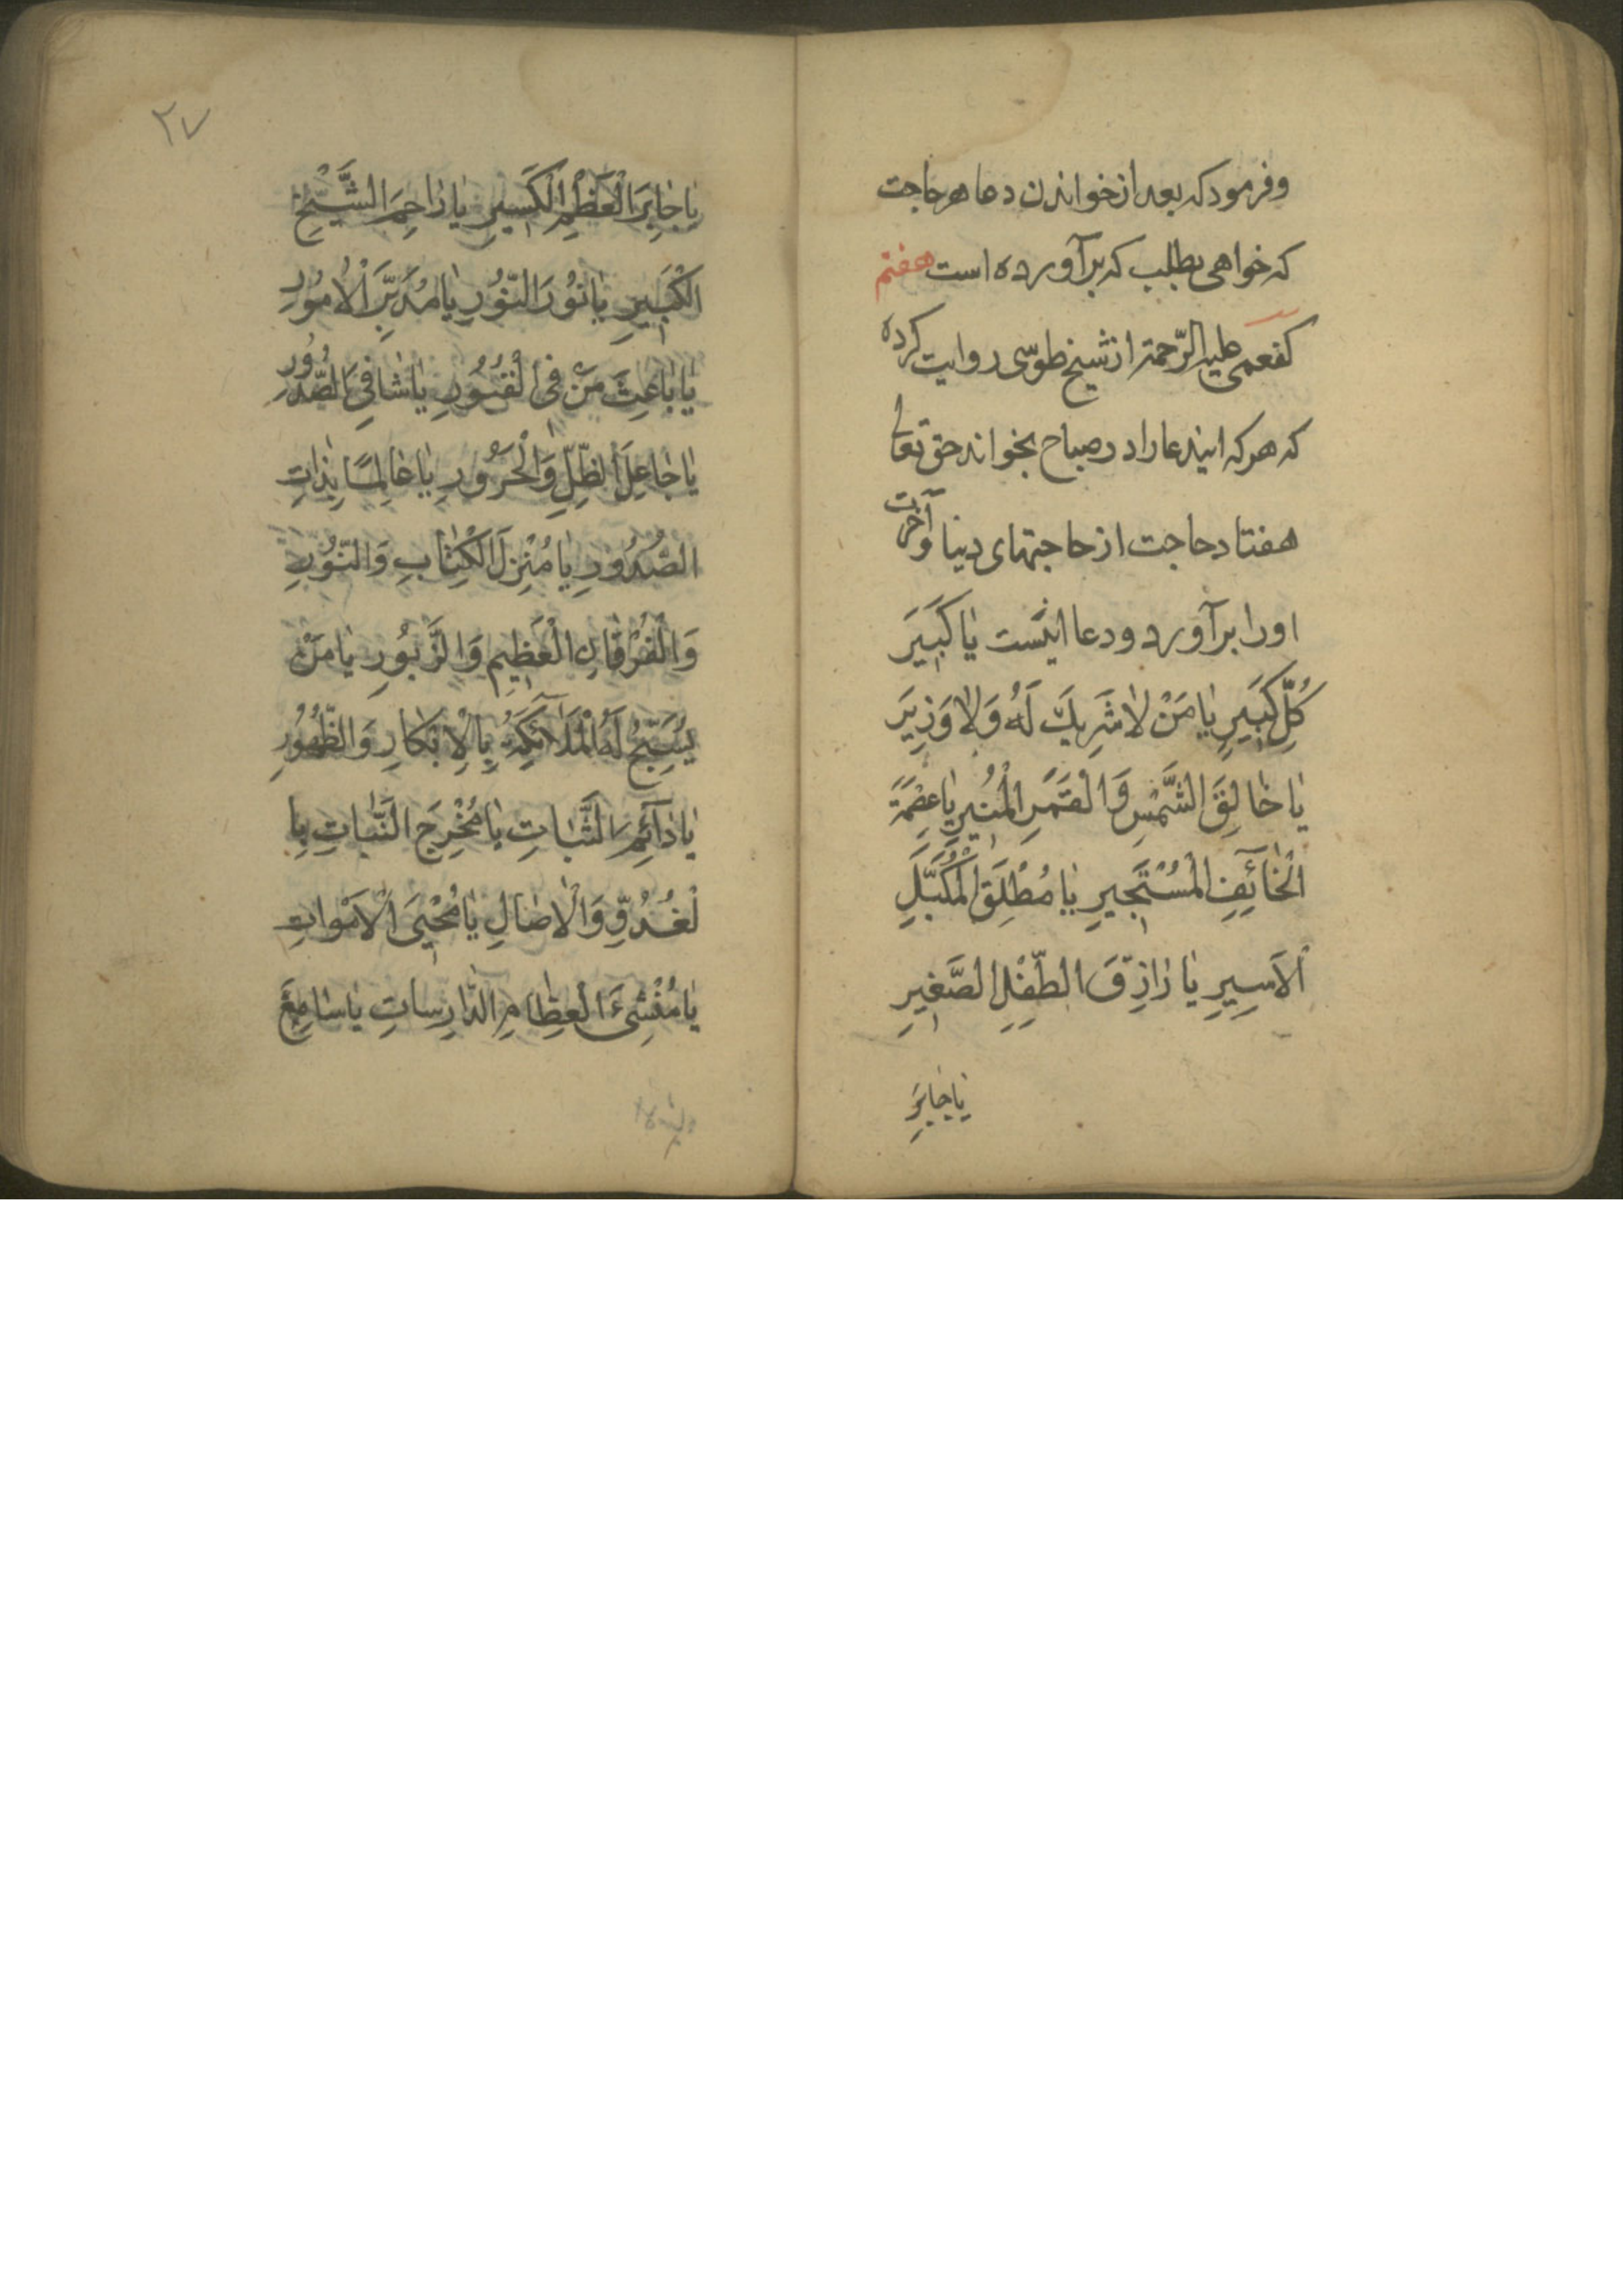 وفرمود که بعد از خواندن دعا هر حاجت
که خواهی بطلب که برآورده است هفتم
کفعمی علیه الرّحمة از شیخ طوسی روایت کرده
که هر که ایندعا را در صباح بخواند حق تعالی
هفتاد حاجت از حاجتهای دینا و آخرت
او را برآورد و دعا اینست یا کَبیرَ
کُلِّ کَبیرٍ یا مَنْ لا شَریكَ لَهُ وَلا وَزیرَ
یا خالِقَ الشَّمْسِ وَالْقَمَرِ الْمُنیرِ یا عِصْمَةَ
الْخآئِفِ الْمُسْتَجیرِ یا مُطْلِقَ الْمُکَبَّلِ
الْاَسیرِ یا رازِقَ الطِّفْلِ الصَّغیرِ
یا جابِرَ
٢٧
یا جابِرَ الْعَظْمِ الْکَسیرِ یا راحِمَ الشَّیْخِ
الْکَبیرِ یا نُورَ النُّورِ یا مُدَبِّرَ الْاُمُورِ
یا باعِثَ مَنْ فِی الْقُبُورِ یا شافِیَ الصُّدُورِ
یا جاعِلَ الظِّلِّ وَالْحَرُورِ یا عالِمًا بِذاتِ
الصُّدُورِ یا مُنْزِلَ الْکِتابِ وَالنُّورِ
وَالْفُرْقانِ الْعَظیمِ وَالزَّبُورِ یا مَنْ
یُسَبِّحُ لَهُ الْمَلآئِکَةُ بِالْاِبْکارِ وَالظُّهُورِ
یا دآئِمَ الثَّباتِ یا مُخْرِجَ النَّباتِ بِا
لْغُدُوِّ وَالْاصالِ یا مُحْیِیَ الْاَمْواتِ
یا مُنْشِئَ الْعِظامِ الدّارِساتِ یا سامِعَ